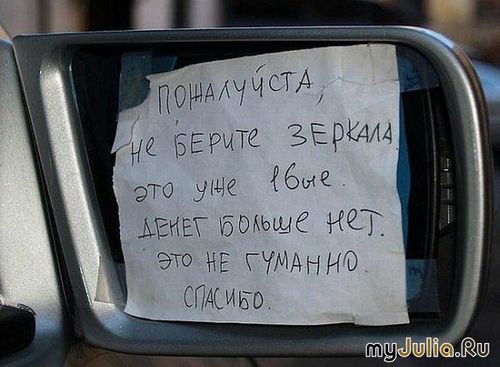 ПОЖАЛУЙСТА,
НЕ БЕРИТЕ ЗЕРКАЛА
ЭТО УЖЕ 16ые.
ДЕНЕГ БОЛЬШЕ НЕТ.
ЭТО НЕ ГУМАННО
СПАСИБО.
myJulia.Ru